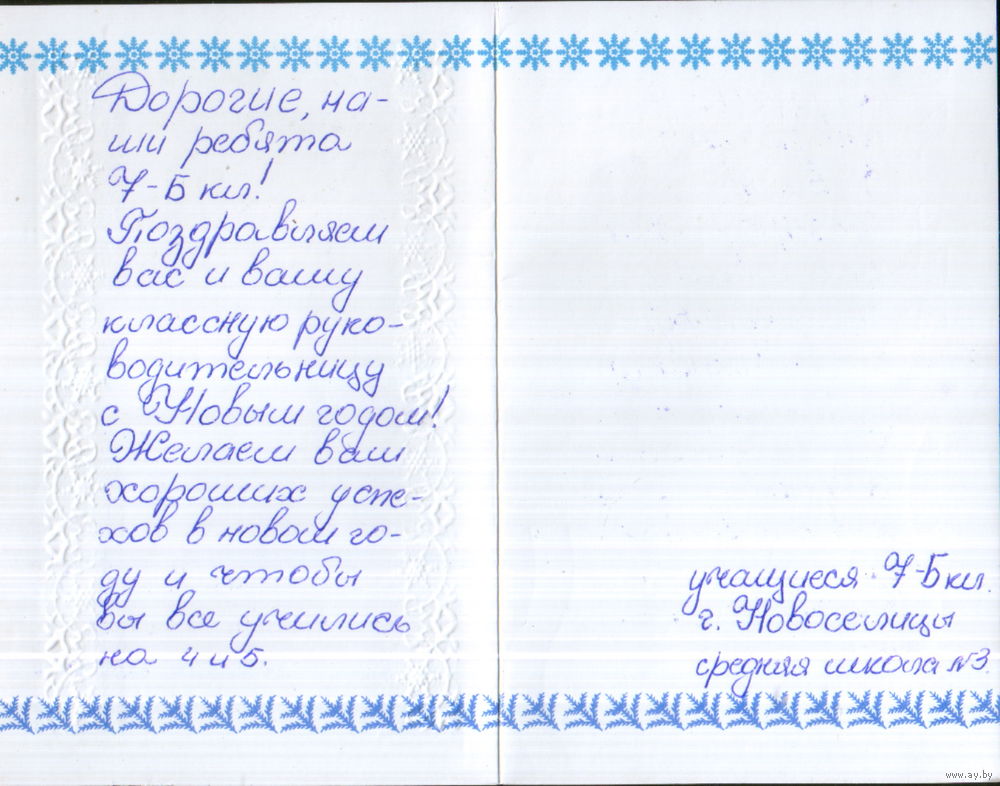 Дорогие, на-
ши ребята
7-Б кл!
Поздравляем
вас и вашу
классную руко-
водительницу
с Новым годом!
Желаем вам
хороших успе-
хов в новом го-
ду и чтобы
вы все учились
на 4 и 5.
учащиеся 7-Б кл.
г. Новоселицы
средняя школа №3.
www.ay.by